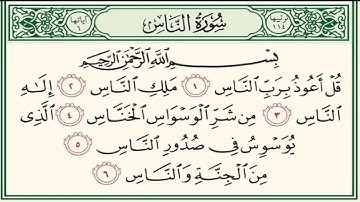 ترتيبها ١١٤ سُورَةُ النَّاسِ آياتها ٦
بِسْمِ اللَّهِ الرَّحْمَٰنِ الرَّحِيمِ
قُلْ أَعُوذُ بِرَبِّ النَّاسِ ١ مَلِكِ النَّاسِ ٢ إِلَٰهِ
النَّاسِ ٣ مِن شَرِّ الْوَسْوَاسِ الْخَنَّاسِ ٤ الَّذِي
يُوَسْوِسُ فِي صُدُورِ النَّاسِ ٥
مِنَ الْجِنَّةِ وَالنَّاسِ ٦